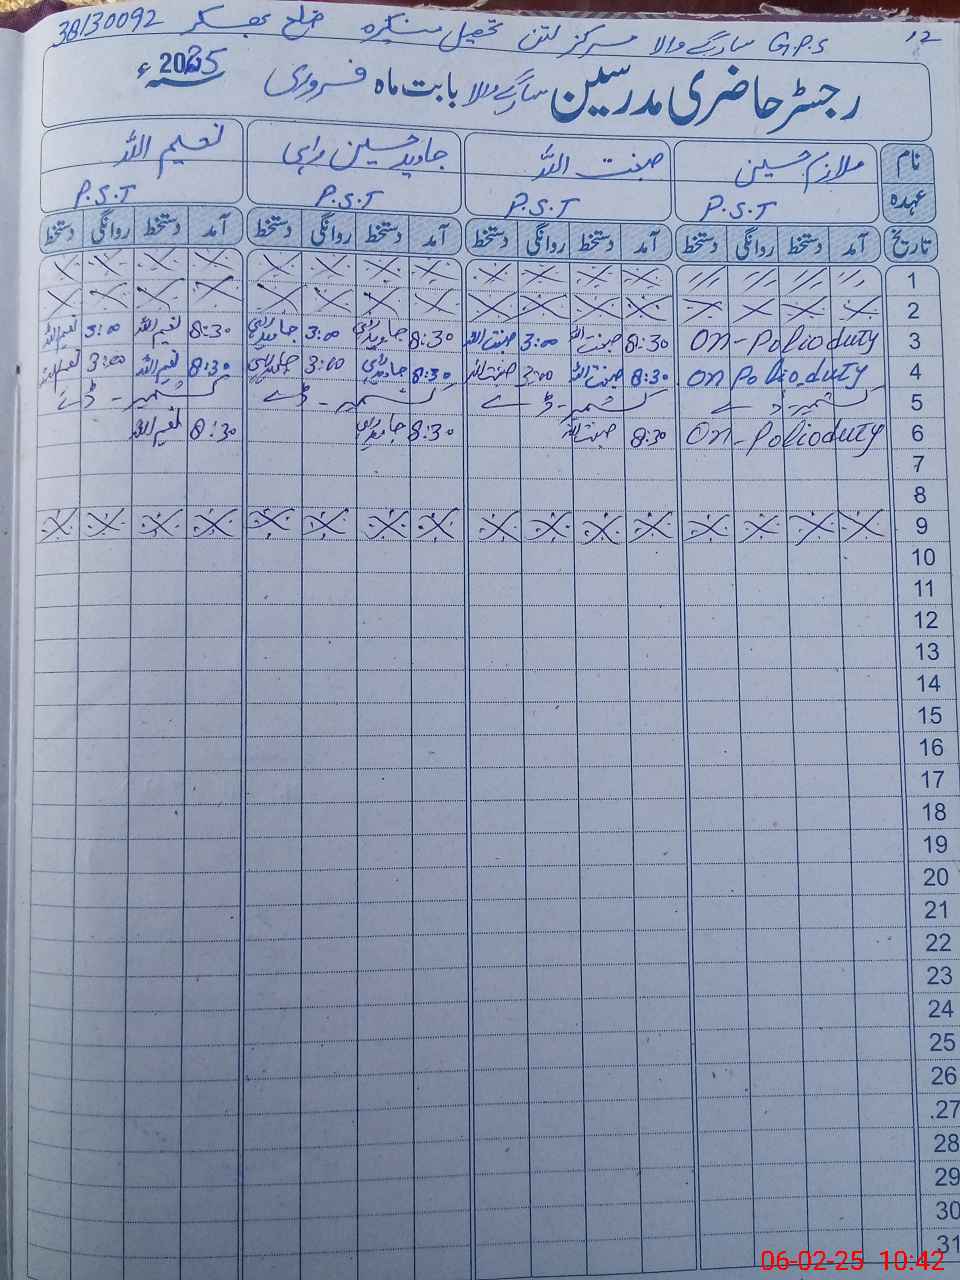 12 G.P.S سارگے والا مرکز لتن تحصیل منکیرہ ضلع بھکر 38130092
رجسٹر حاضری مدرسین سارگے والا بابت ماہ فروری 2025ء
نام ملازم حسین صبغت اللہ جاوید حسین راہی نعیم اللہ
عہدہ P.S.T P.S.T P.S.T P.S.T
تاریخ آمد دستخط روانگی دستخط آمد دستخط روانگی دستخط آمد دستخط روانگی دستخط آمد دستخط روانگی دستخط
1
2
3 On-Polio duty 8:30 صبغت اللہ 3:00 صبغت اللہ 8:30 جاوید راہی 3:00 جاوید راہی 8:30 نعیم اللہ 3:00 نعیم اللہ
4 On Polio duty 8:30 صبغت اللہ 3:00 صبغت اللہ 8:30 جاوید راہی 3:00 جاوید راہی 8:30 نعیم اللہ 3:00 نعیم اللہ
5 کشمیر - ڈے کشمیر - ڈے کشمیر - ڈے کشمیر - ڈے
6 On-Polio duty 8:30 صبغت اللہ 8:30 جاوید راہی 8:30 نعیم اللہ
7
8
9
10
11
12
13
14
15
16
17
18
19
20
21
22
23
24
25
26
27
28
29
30
31
06-02-25 10:42